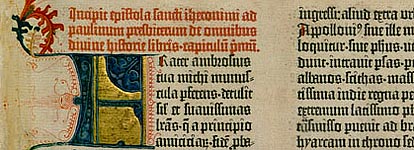 Incipit epistola sancti iheronimi ad
paulinum presbiterum de omnibus
divine historie libris. capitulū pᵐū.
Frater ambrosius
tua michi munus-
cula ꝑferens. detulit
sil̄ et suavissimas
lr̄as. q̄ a principio
amiciciaꝝ. fidē ꝓba-
ingressi: aliud extra u
Appolloniꝰ sive ille m
loquitur. sive ph̄us. u
dunt. intravit ꝑsas. p
albanos. scithas. mas
tissima indie regna pe
extremum latissimo p
trāsmisso ꝑuenit ad b
hyarcam in throno se